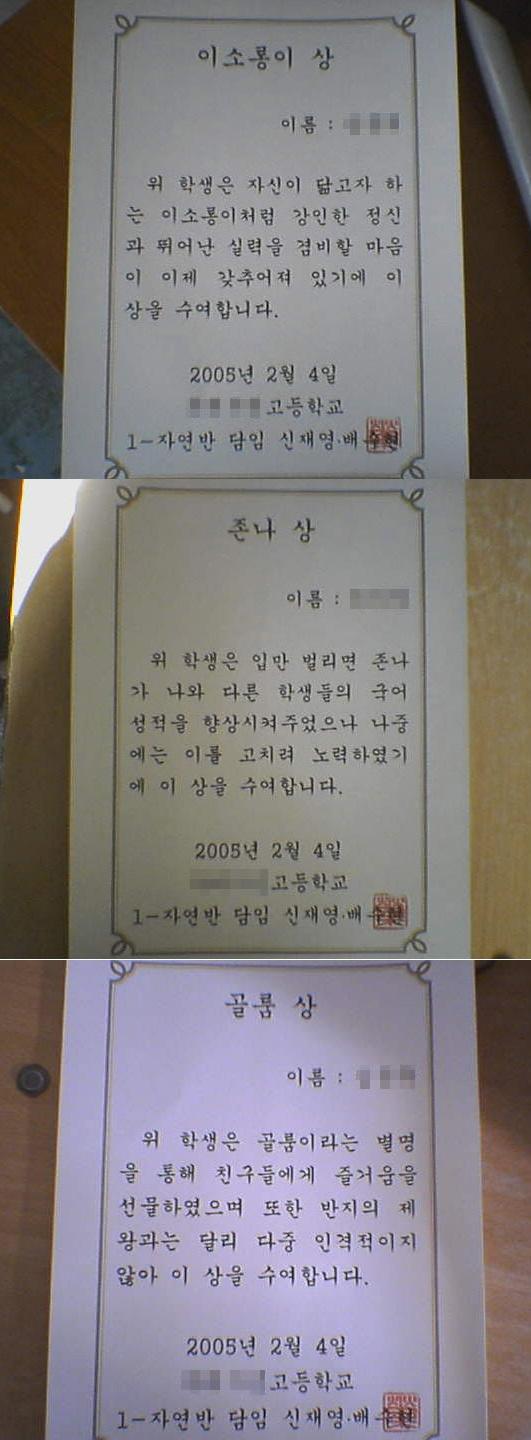 이소룡이 상
이름 :
위 학생은 자신이 닮고자 하
는 이소룡이처럼 강인한 정신
과 뛰어난 실력을 겸비할 마음
이 이제 갖추어져 있기에 이
상을 수여합니다.
2005년 2월 4일
고등학교
1-자연반 담임 신재영·배수현
존나 상
이름 :
위 학생은 입만 벌리면 존나
가 나와 다른 학생들의 국어
성적을 향상시켜주었으나 나중
에는 이를 고치려 노력하였기
에 이 상을 수여합니다.
2005년 2월 4일
고등학교
1-자연반 담임 신재영·배수현
골룸 상
이름 :
위 학생은 골룸이라는 별명
을 통해 친구들에게 즐거움을
선물하였으며 또한 반지의 제
왕과는 달리 다중 인격적이지
않아 이 상을 수여합니다.
2005년 2월 4일
고등학교
1-자연반 담임 신재영·배수현